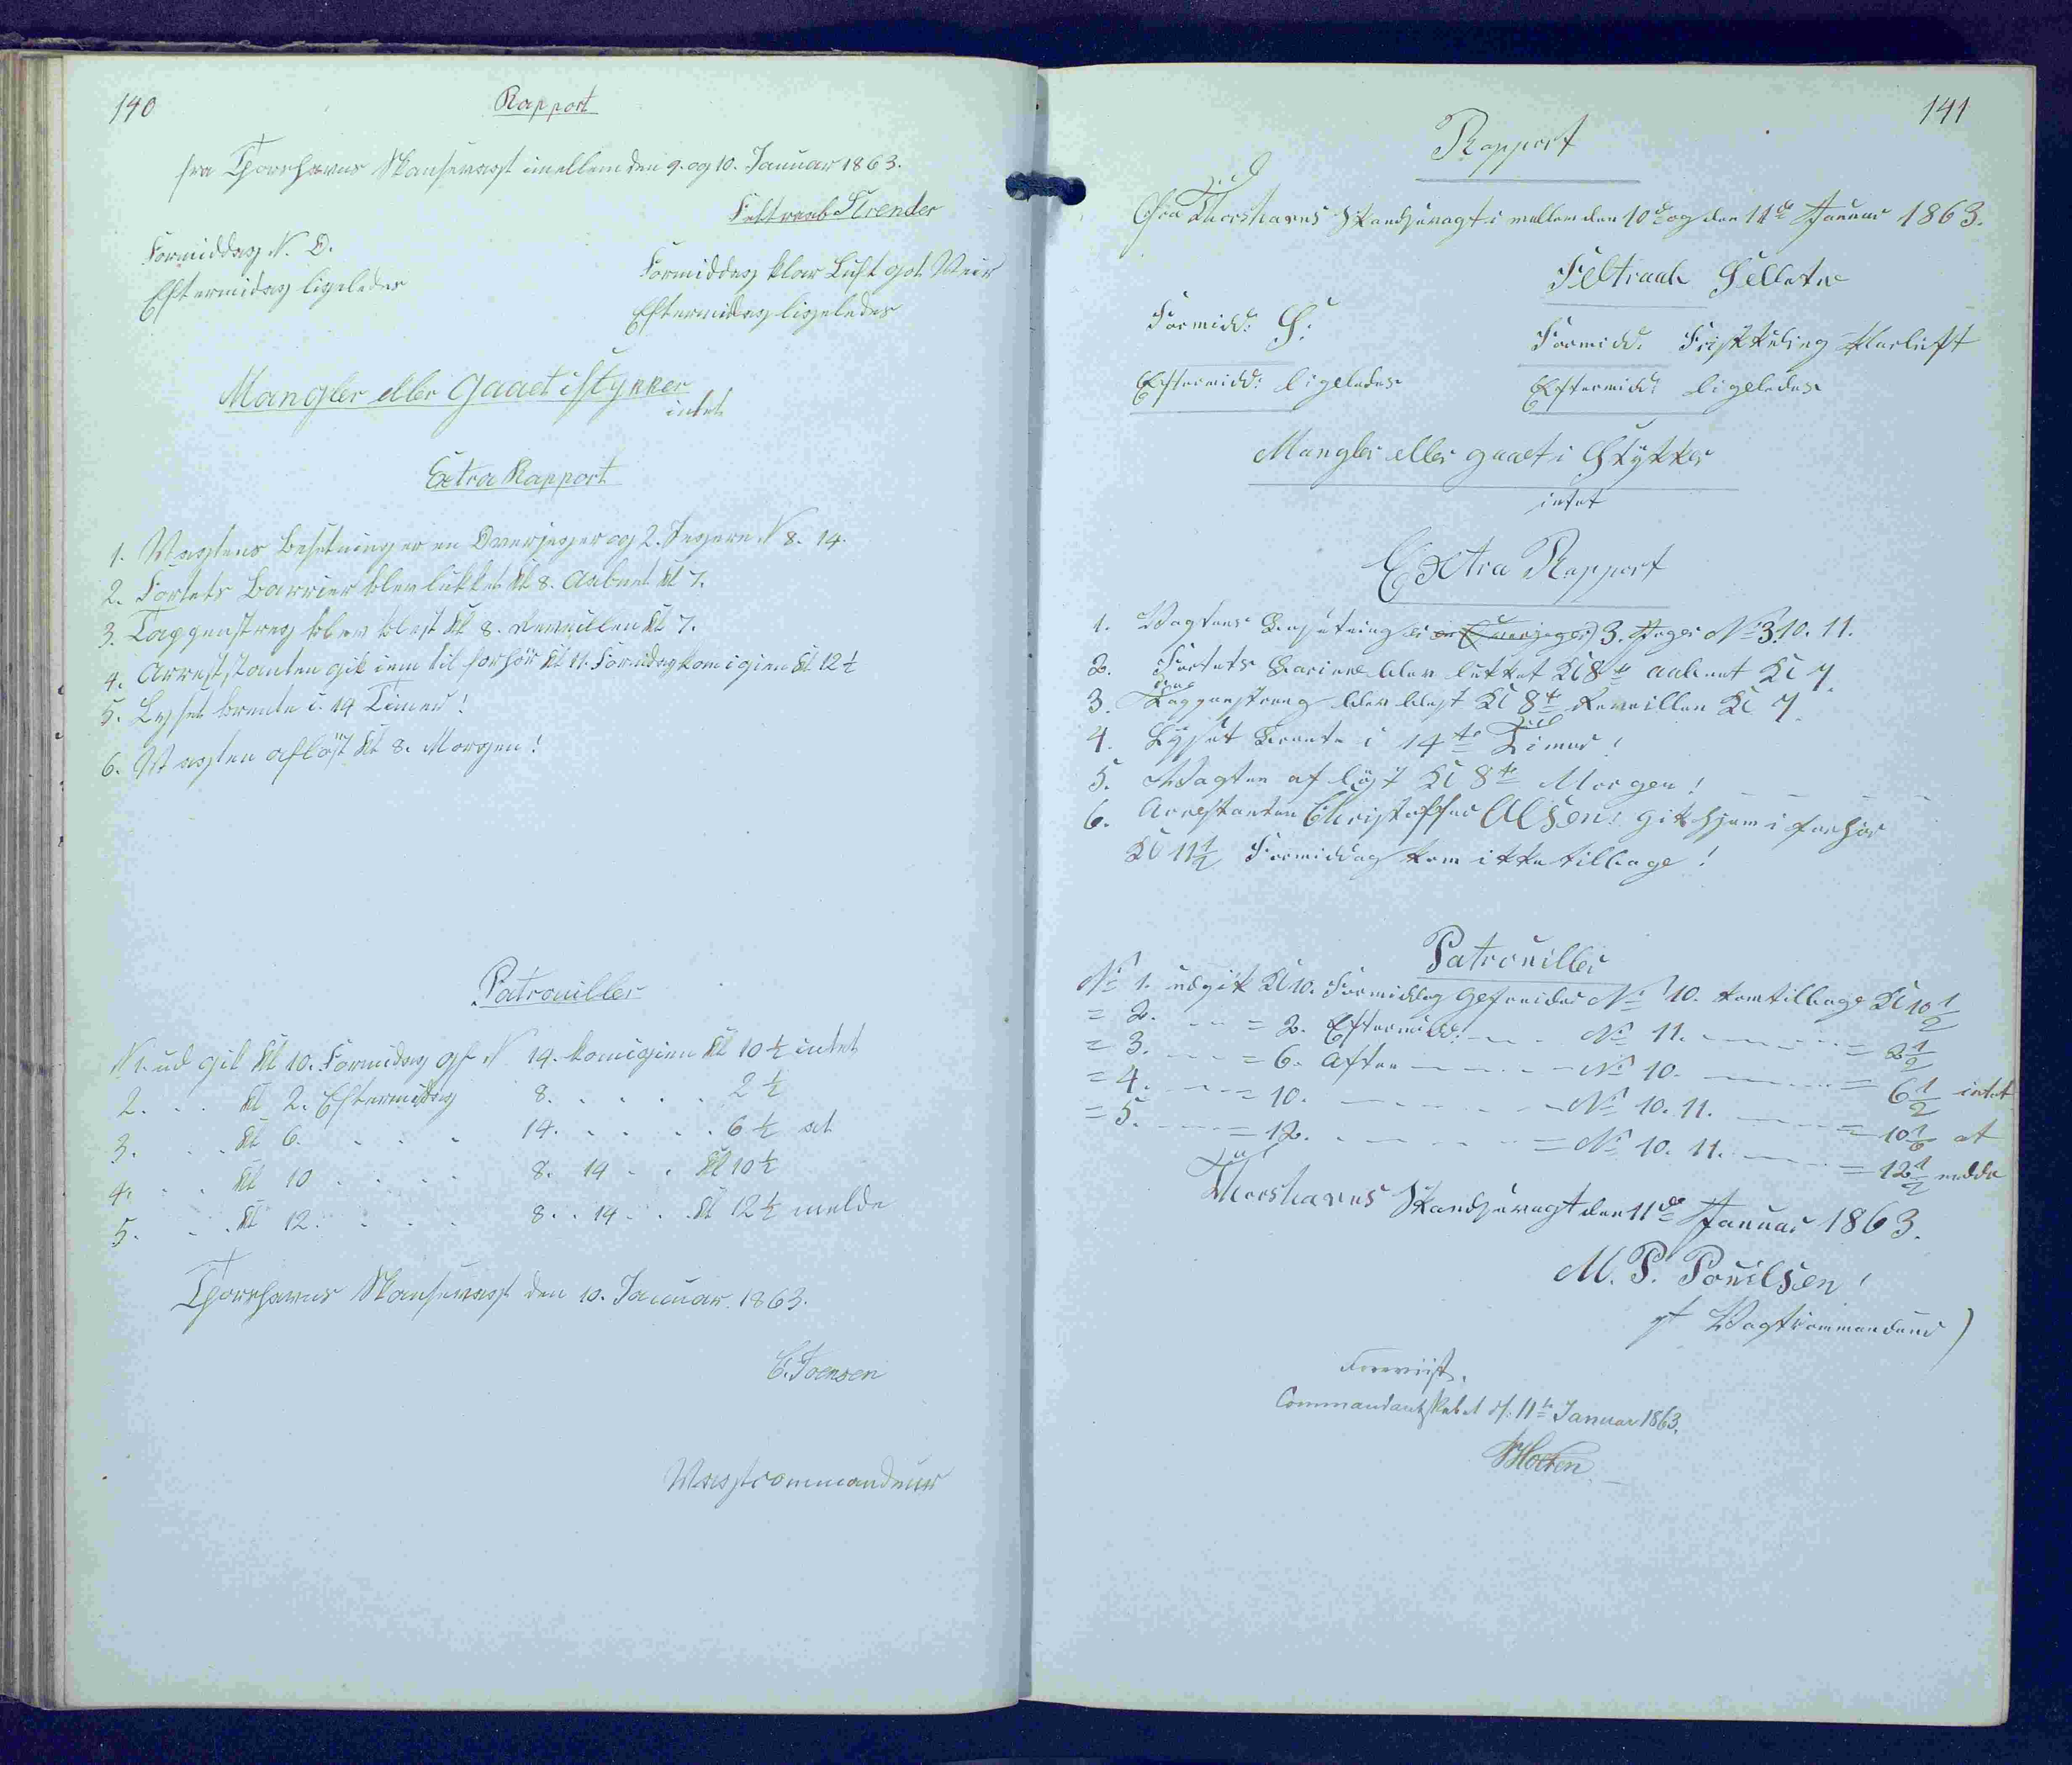 140
Rapport
fra Thorshavns Skansevagt imellem den 9. og 10. Januar 1863.
Feltraab Strender
Formiddag N. O.
Formiddag klar Luft got Veir
Eftermidag ligeledes
Eftermiddag ligeledes
Mangler eller Gaaet i Stykker
intet
Extra Rapport
1. Vagtens besetning er en Overjeger og 2. Jegere N 8. 14.
2. Fortets barrier blev lukket kl 8. Aabnet kl 7.
3. Tappenstreg blev blest kl 8. Reveillen kl 7.
4. Arreststanten gik iem til forhör kl 11. Formidag kom igien kl 12 ½
5. Lyset brente i 14 Timer!
6. Vagten aflöst kl 8. Morgen!
Patrouiller
N 1. ud gik kl 10. Formidag gf N 14. kom igien kl 10 ½ intet
2. . . kl 2. Eftermidag 8. . . . . . 2 ½
3. . . kl 6. . . . . 14. . . . . . 6 ½ at
4. . . kl 10 . . . . . 8. 14 . . kl 10 ½
5. . . kl 12. . . . . 8. . 14 . . kl 12 ½ melde
Thorshavns Skansevagt den 10. Januar. 1863.
C. Joensen
Vagtcommandeur
141
Rapport
Fra Thorshavns Skandsevagt i mellem den 10de og den 11de Januar 1863.
Feltraab Selleter
Formidd: S:
Formidd. Frisk Kuling Klarluft
Eftermidd: ligeledes
Eftermidd: ligeledes
Mangler eller gaaet i Stykker
intet
Extra Rapport
1. Vagtens Besetning er en Overjeger 3. Jeger No 3. 10. 11.
2. Fortets Bariere blev lukket Kl 8te aabnet Kl 7.
3. Tappenstreng blev blest Kl 8te Reveillen Kl 7.
4. Lyset Brente i 14te Timer!
5. Vagten aflöst Kl 8te Morgen!
6. Arrestanten Christoffer Olsen: gik hjem i forhör
Kl 11 ½ Formiddag kom ikke tilbage!
Patrouiller
No 1. udgik Kl 10. Formiddag Gefreider No 10. kom tilbage Kl 10 ½
= 2. - - = 2. Eftermidd: - - - No 11. - - - = 2 ½
= 3. - - = 6. Aften - - - No 10. - - - = 6 ½ intet
= 4. - - = 10. - - - No 10. 11. - - - = 10 ½ at
= 5. - - = 12. - - - = No 10. 11. - - - = 12 ½ melde
Thorshavns Skandsevagt den 11de Januar 1863.
M. P. Poulsen!
pt Vagtcommandeur)
Foreviist.
Commandantskabet d. 11te Januar 1863.